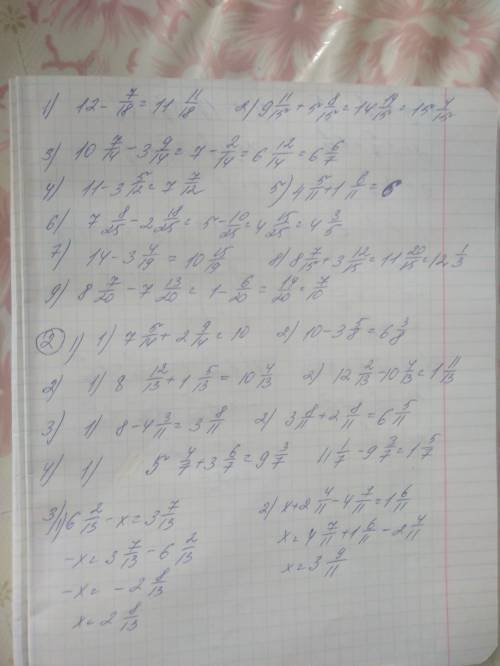 1) 12 - 7/18 = 11 11/18 2) 9 11/15 + 5 8/15 = 14 19/15 = 15 4/15
3) 10 7/14 - 3 9/14 = 7 - 2/14 = 6 12/14 = 6 6/7
4) 11 - 3 5/12 = 7 7/12 5) 4 5/11 + 1 6/11 = 6
6) 7 8/25 - 2 18/25 = 5 - 10/25 = 4 15/25 = 4 3/5
7) 14 - 3 4/19 = 10 15/19 8) 8 7/15 + 3 12/15 = 11 20/15 = 12 1/3
9) 8 7/20 - 7 13/20 = 1 - 6/20 = 14/20 = 7/10
2 1) 1) 7 5/14 + 2 9/14 = 10 2) 10 - 3 5/8 = 6 3/8
2) 1) 8 12/13 + 1 5/13 = 10 4/13 2) 12 2/13 - 10 4/13 = 1 11/13
3) 1) 8 - 4 3/11 = 3 8/11 2) 3 8/11 + 2 8/11 = 6 5/11
4) 1) 5 4/7 + 3 6/7 = 9 3/7 11 1/7 - 9 3/7 = 1 5/7
3) 1) 6 2/13 - x = 3 7/13 2) x + 2 4/11 - 4 7/11 = 1 6/11
-x = 3 7/13 - 6 2/13 x = 4 7/11 + 1 6/11 - 2 4/11
-x = -2 8/13 x = 3 9/11
x = 2 8/13